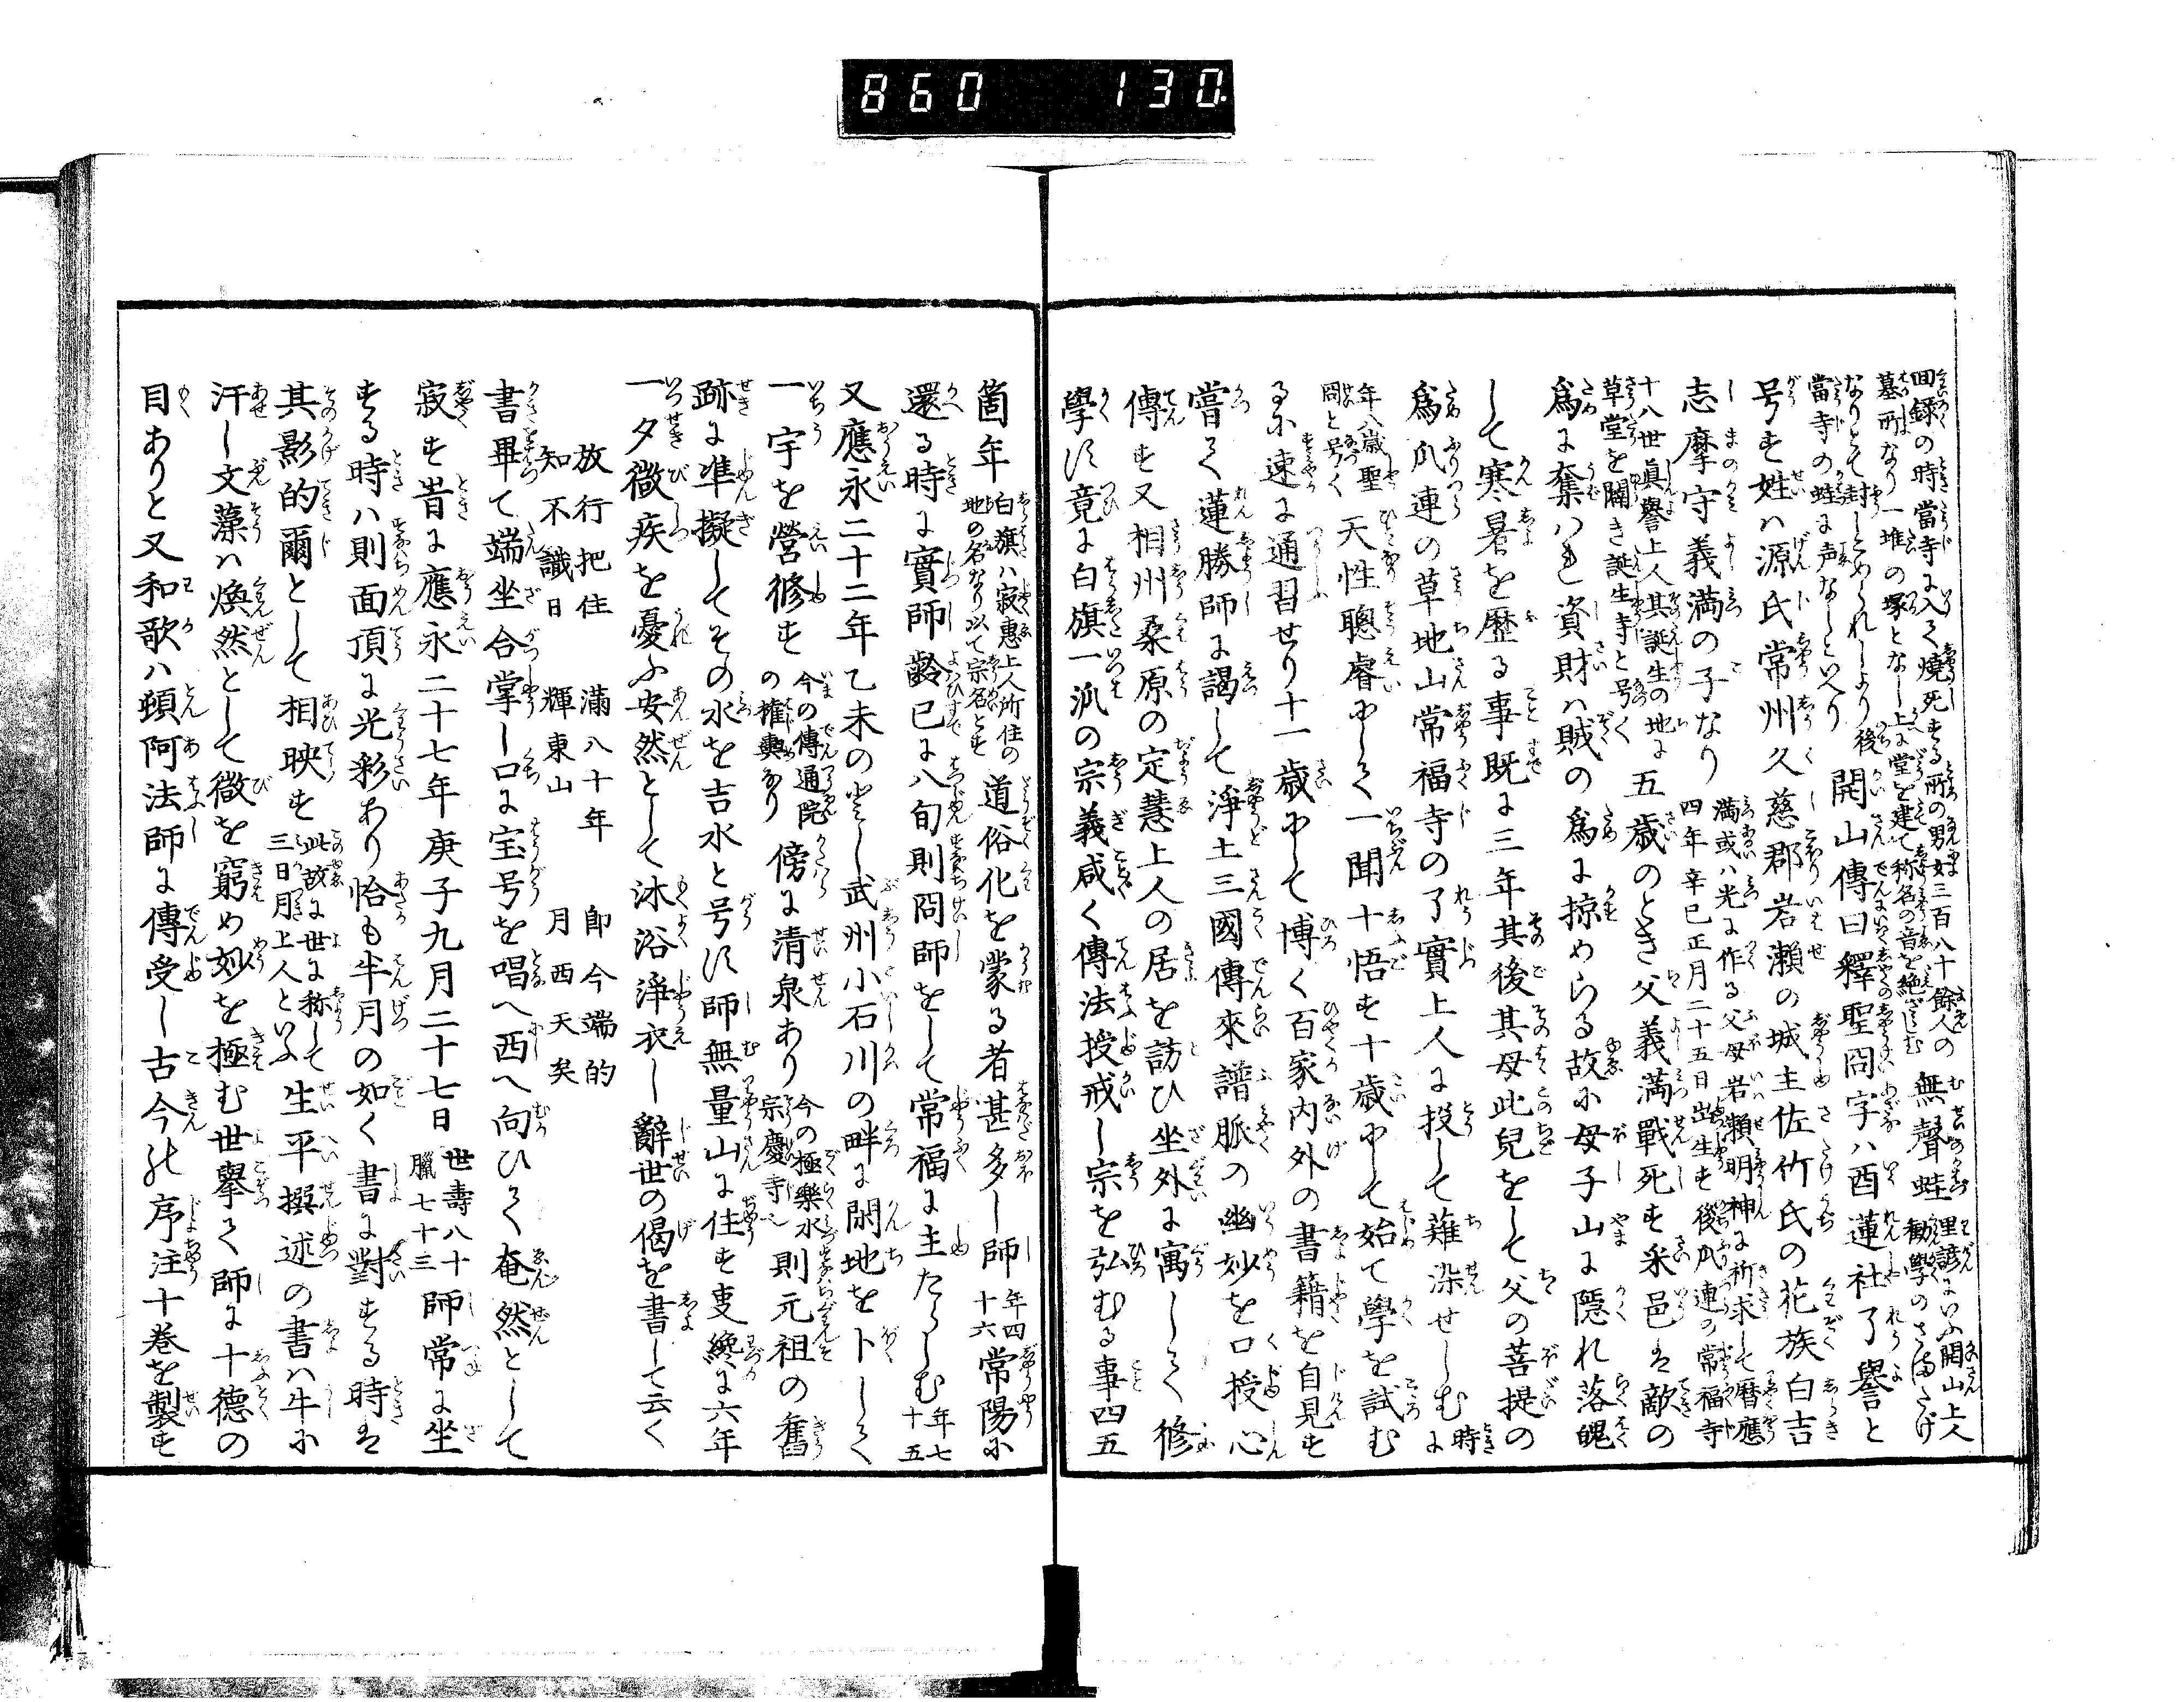 860 130
回録の時當寺に入て燒死する所の男女三百八十餘人の
墓所なり一堆の塚となし上に堂を建て称名の音を絶ざらしむ
無聲蛙 里諺にいふ開山上人
勸學のさまたげ
なりとて封しとめられしより後
當寺の蛙に声なしといへり
開山傳曰釋聖冏字ハ酉蓮社了譽と
号す姓ハ源氏常州久慈郡岩瀬の城主佐竹氏の花族白吉
志摩守義満の子なり
満或ハ光に作る父母岩瀬明神に祈求して暦應
四年辛巳正月二十五日出生す後瓜連の常福寺
十八世眞譽上人其誕生の地に
草堂を闢き誕生寺と号く
五歳のとき父義満戰死す釆邑は敵の
爲に奪はれ資財ハ賊の爲に掠めらる故に母子山に隠れ落魄
して寒暑を歴る事既に三年其後其母此兒をして父の菩提の
爲瓜連の草地山常福寺の了實上人に投して薙染せしむ
時に
年八歳聖
冏と号く
天性聰睿にして一聞十悟す十歳にして始て學を試む
るに速に通習せり十一歳にして博く百家内外の書籍を自見す
嘗て蓮勝師に謁して淨土三國傳來譜脈の幽妙を口授心
傳す又相州桑原の定慧上人の居を訪ひ坐外に寓して修
學し竟に白旗一派の宗義咸く傳法授戒し宗を弘むる事四五
箇年
白旗ハ寂惠上人所住の
地の名なり以て宗名とす
道俗化を蒙る者甚多し師
年四
十六
常陽に
還る時に實師齡已に八旬則冏師をして常福に主たらしむ
年七
十五
又應永二十二年乙未の冬武州小石川の畔に閑地を卜して
一宇を營修す
今の傳通院
の権輿なり
傍に清泉あり
今の極樂水
宗慶寺也
則元祖の舊
跡に準擬してその水を吉水と号し師無量山に住す叓纔に六年
一夕微疾を憂ふ安然として沐浴淨衣し辭世の偈を書して云く
放行把住 満八十年 即今端的
知不識日 輝東山 月西天矣
書畢て端坐合掌し口に宝号を唱へ西へ向ひて奄然として
寂す旹に應永二十七年庚子九月二十七日
世壽八十
臘七十三
師常に坐
する時ハ則面頂に光彩あり恰も半月の如く書に對する時は
其影的爾として相映す
此故に世に称して
三日月上人といふ
生平撰述の書ハ牛に
汗し文藻ハ煥然として微を窮め妙を極む世擧て師に十德の
目ありと又和歌ハ頓阿法師に傳受し古今の序注十巻を製す